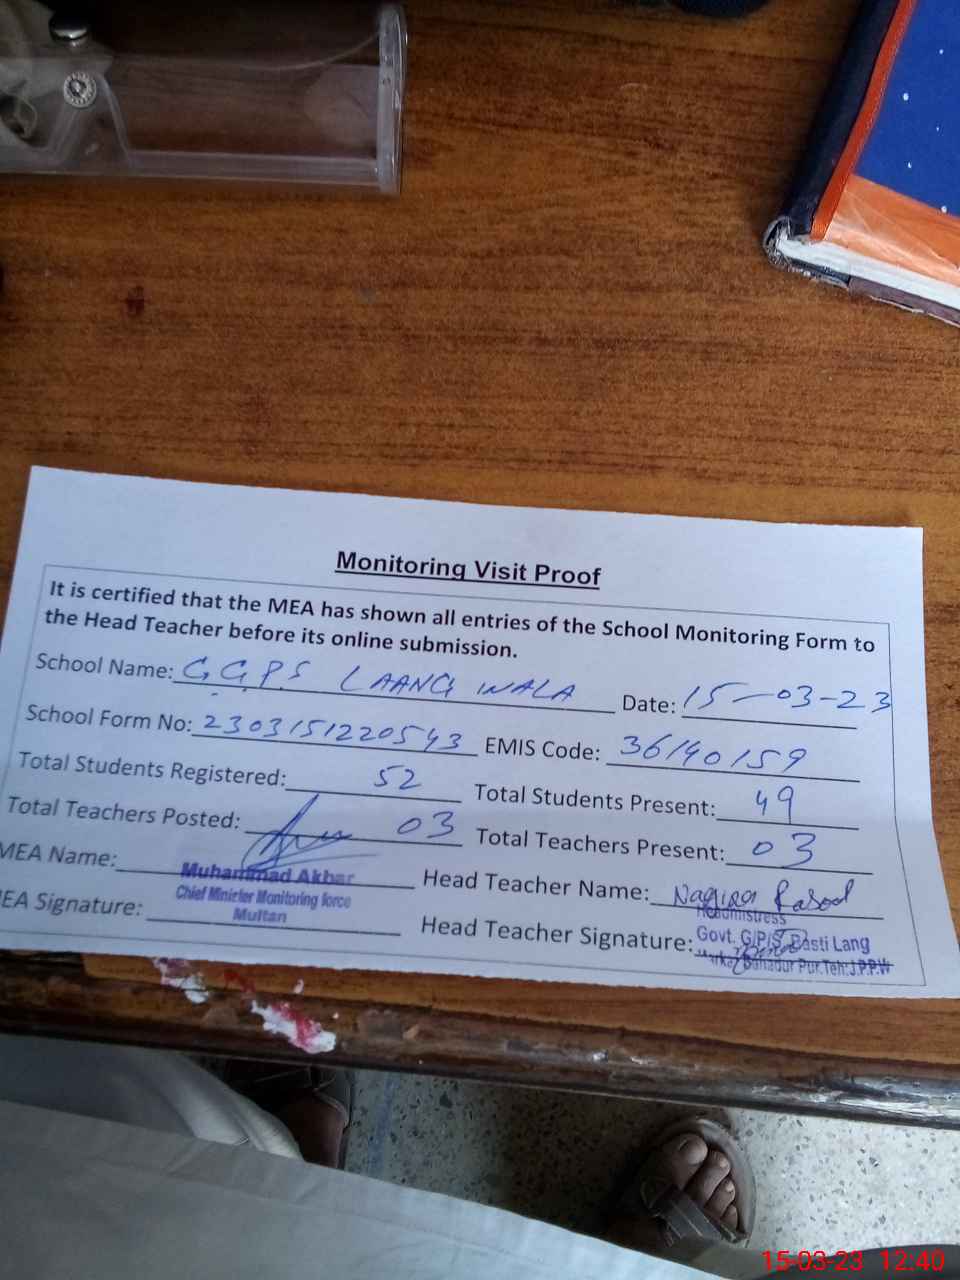 Monitoring Visit Proof
It is certified that the MEA has shown all entries of the School Monitoring Form to
the Head Teacher before its online submission.
School Name: G.G.P.S LAANG WALA Date: 15-03-23
School Form No: 2303151220543 EMIS Code: 36140159
Total Students Registered: 52 Total Students Present: 49
Total Teachers Posted: 03 Total Teachers Present: 03
MEA Name: Muhammad Akbar Head Teacher Name: Rasool
Chief Minister Monitoring force
Multan
Headmistress
EA Signature: Head Teacher Signature:
Govt. G/P/S Basti Lang
Markaz Bahadur Pur.Teh:J.P.P.W
15-03-23 12:40